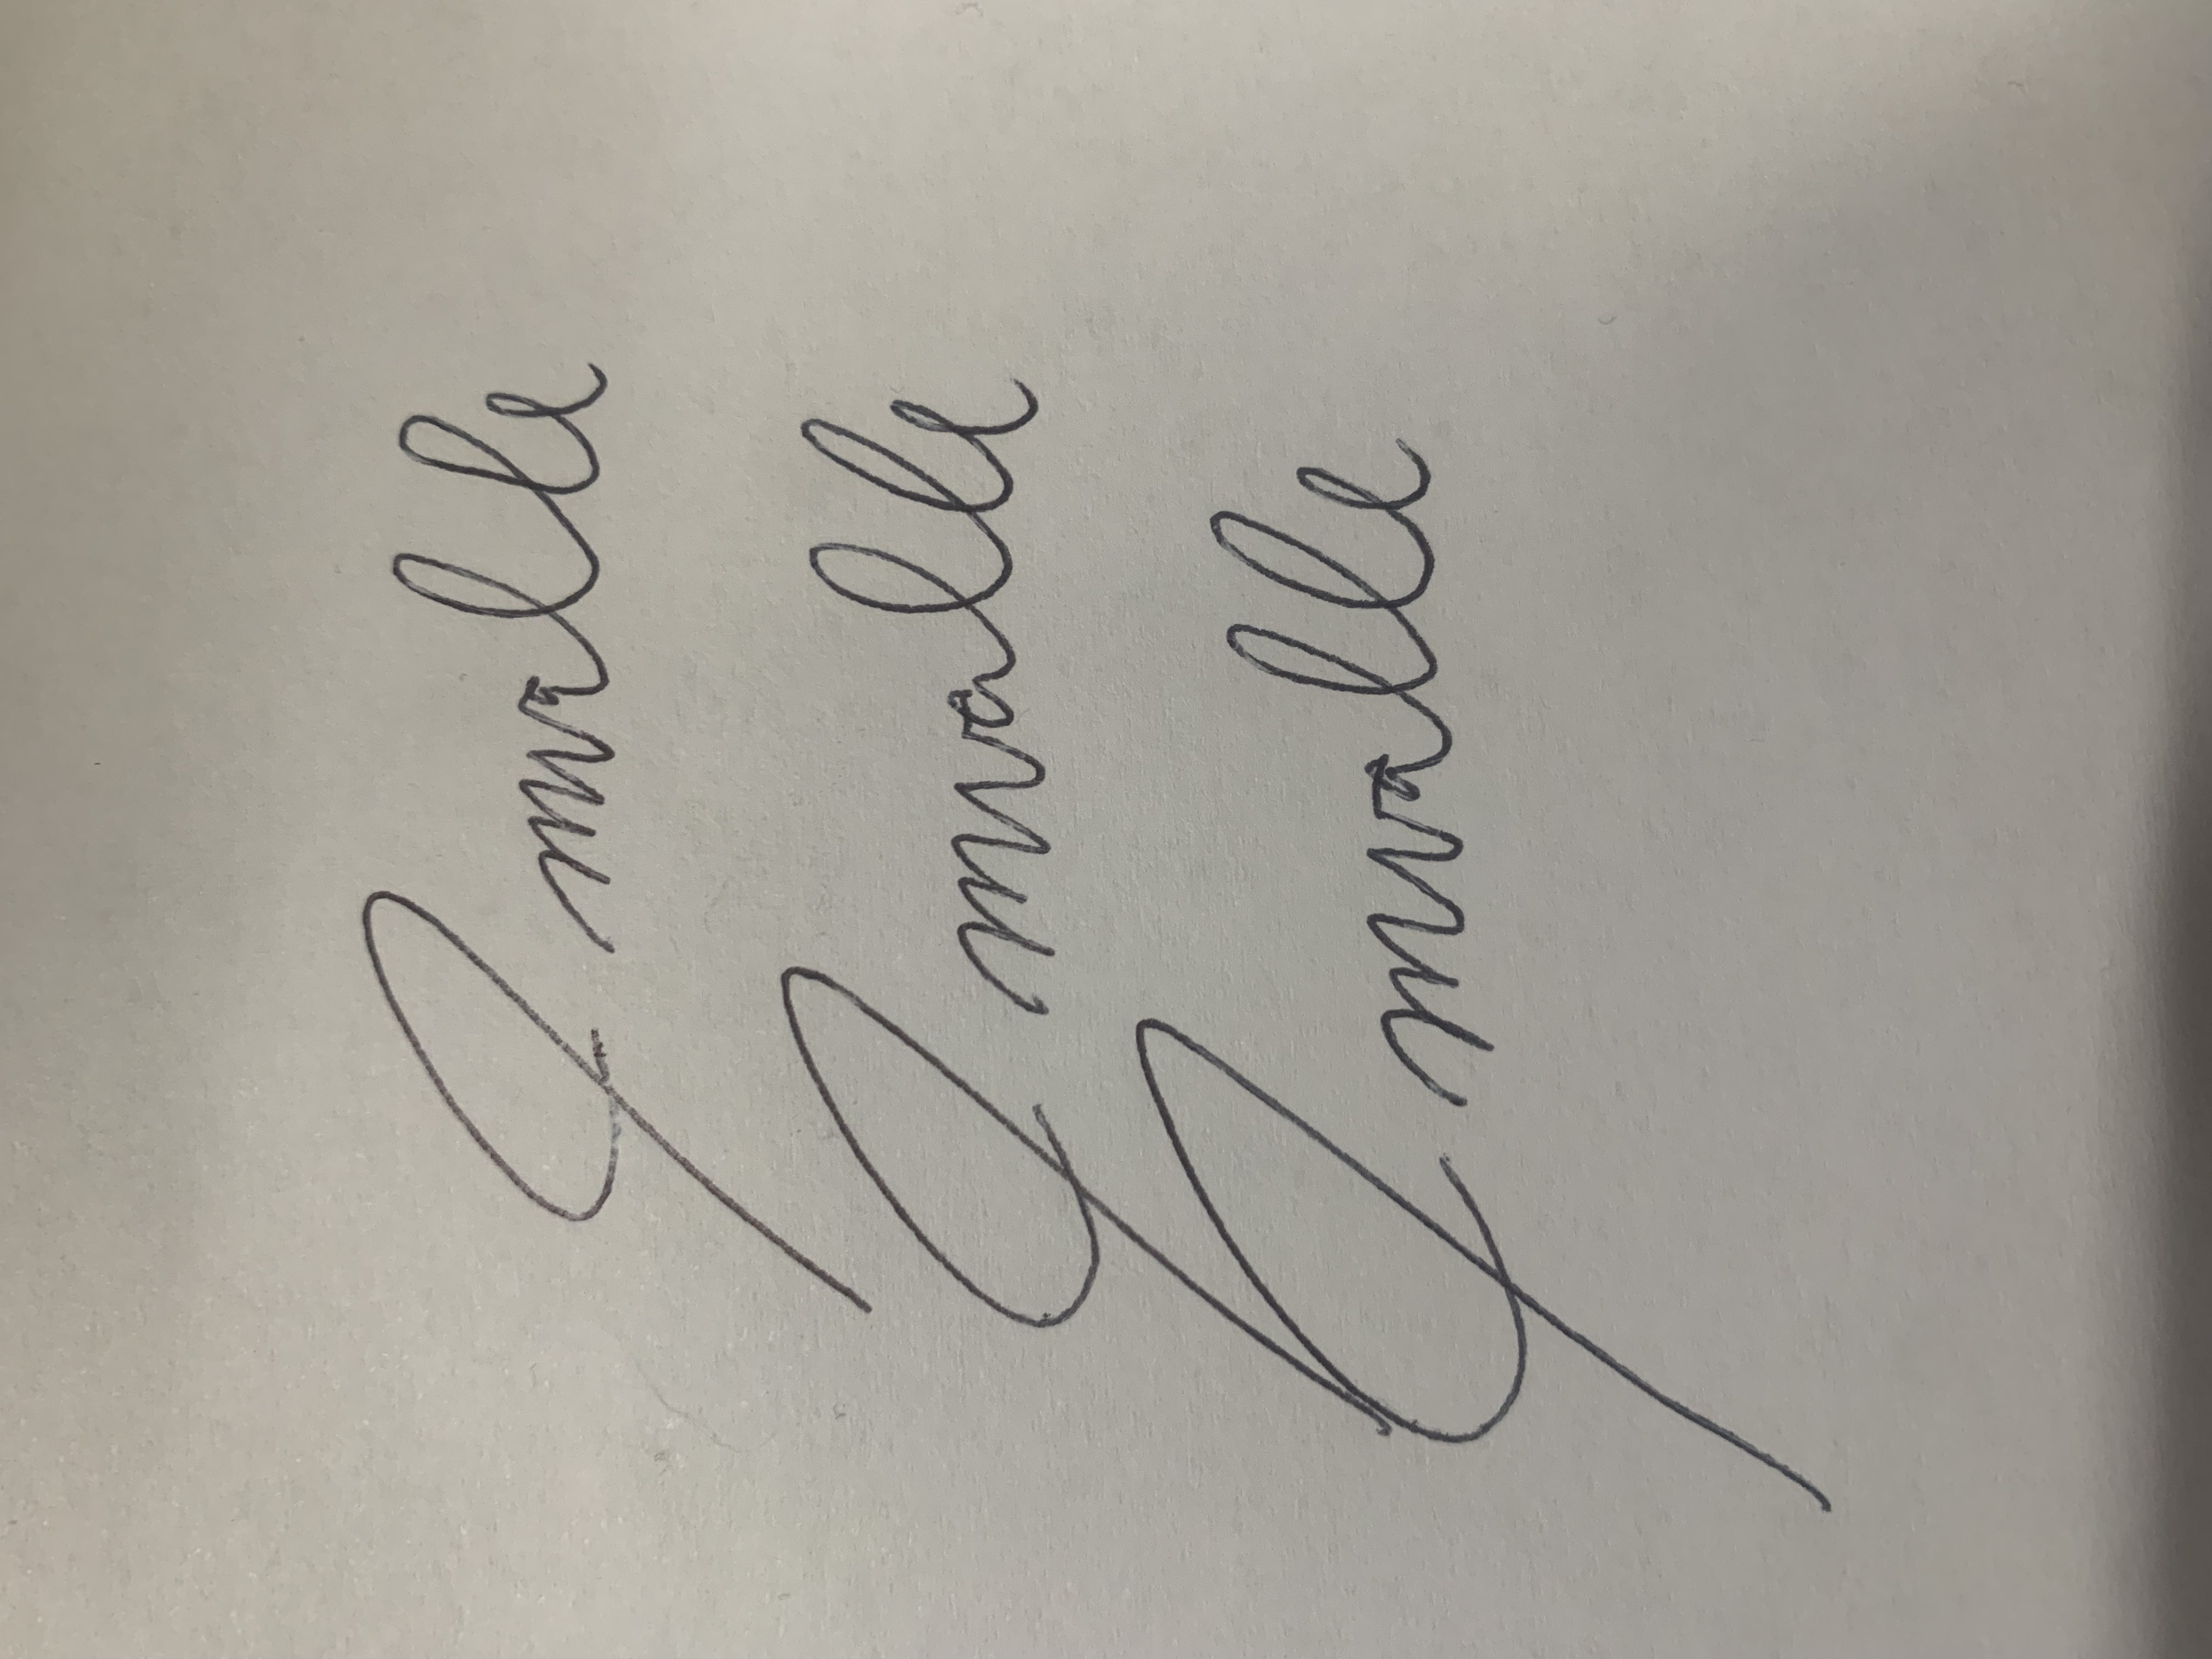 Jmvalle
Jmvalle
Jmvalle